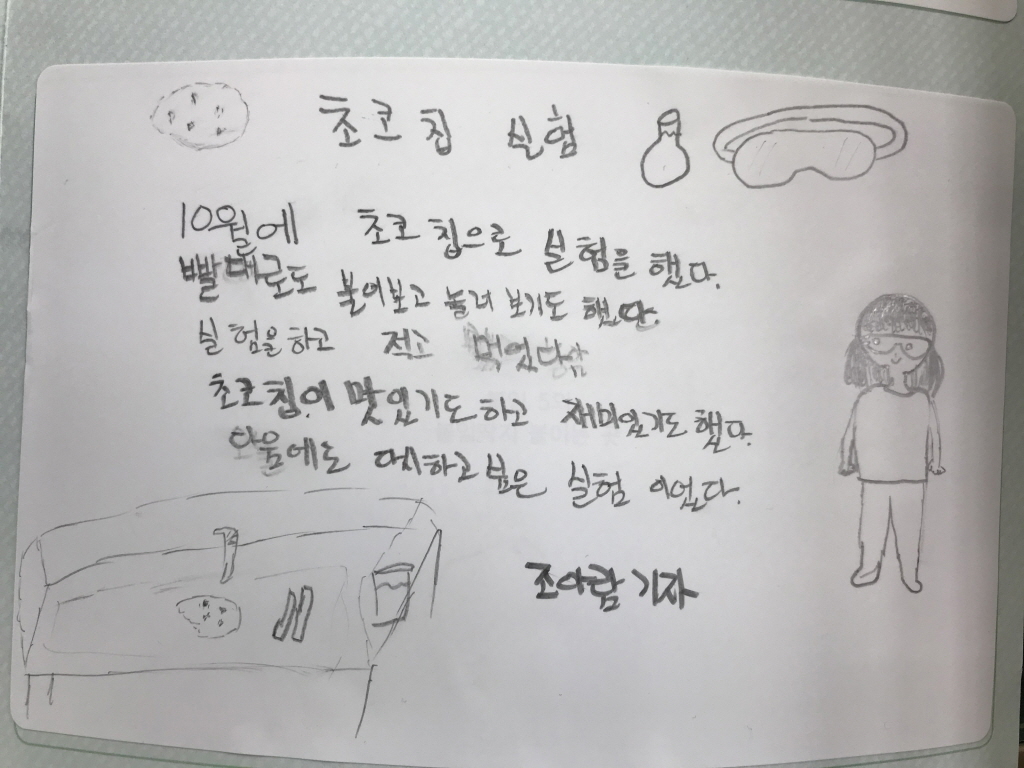 초코칩 실험
10월에 초코칩으로 실험을 했다.
빨대로도 불어보고 눌러 보기도 했다.
실험을하고 적고 먹었다
초코칩이 맛있기도하고 재미있기도 했다.
다음에도 다시하고싶은 실험 이었다.
조아람 기자